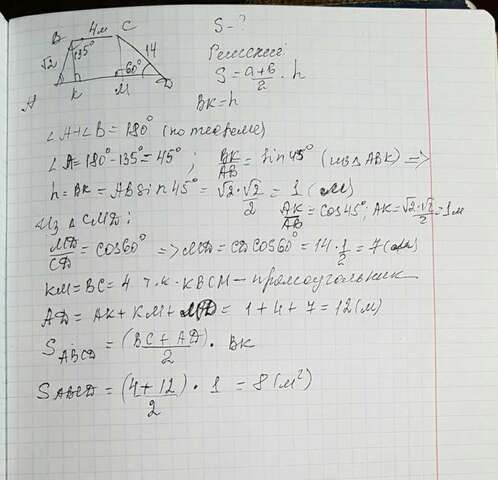 S-?
B 4м C
135° 14
√2 60°
A K M D
Решение:
S = a+b/2 · h
BK = h
∠A+∠B = 180° (по теореме)
∠A = 180°-135° = 45° ; BK/AB = sin45° (из △ABK) =>
h = BK = AB sin 45° = √2·√2/2 = 1 (м)
Из △CMD: AK/AB = cos45°; AK = √2·√2/2 = 1м
MD/CD = cos60° => MD = CD cos60° = 14·1/2 = 7 (м)
KM = BC = 4 т.к. KBCM - прямоугольник
AD = AK + KM + MD = 1+4+7 = 12(м)
S ABCD = (BC + AD)/2 · BK
S ABCD = (4+12)/2 · 1 = 8 (м²)